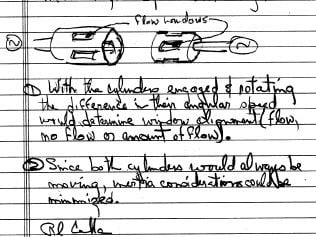 flow windows
① With the cylinders engaged & rotating
the difference in their angular speed
would determine window alignment (flow,
no flow or amount of flow).
② Since both cylinders would always be
moving, inertia considerations could be
minimized.